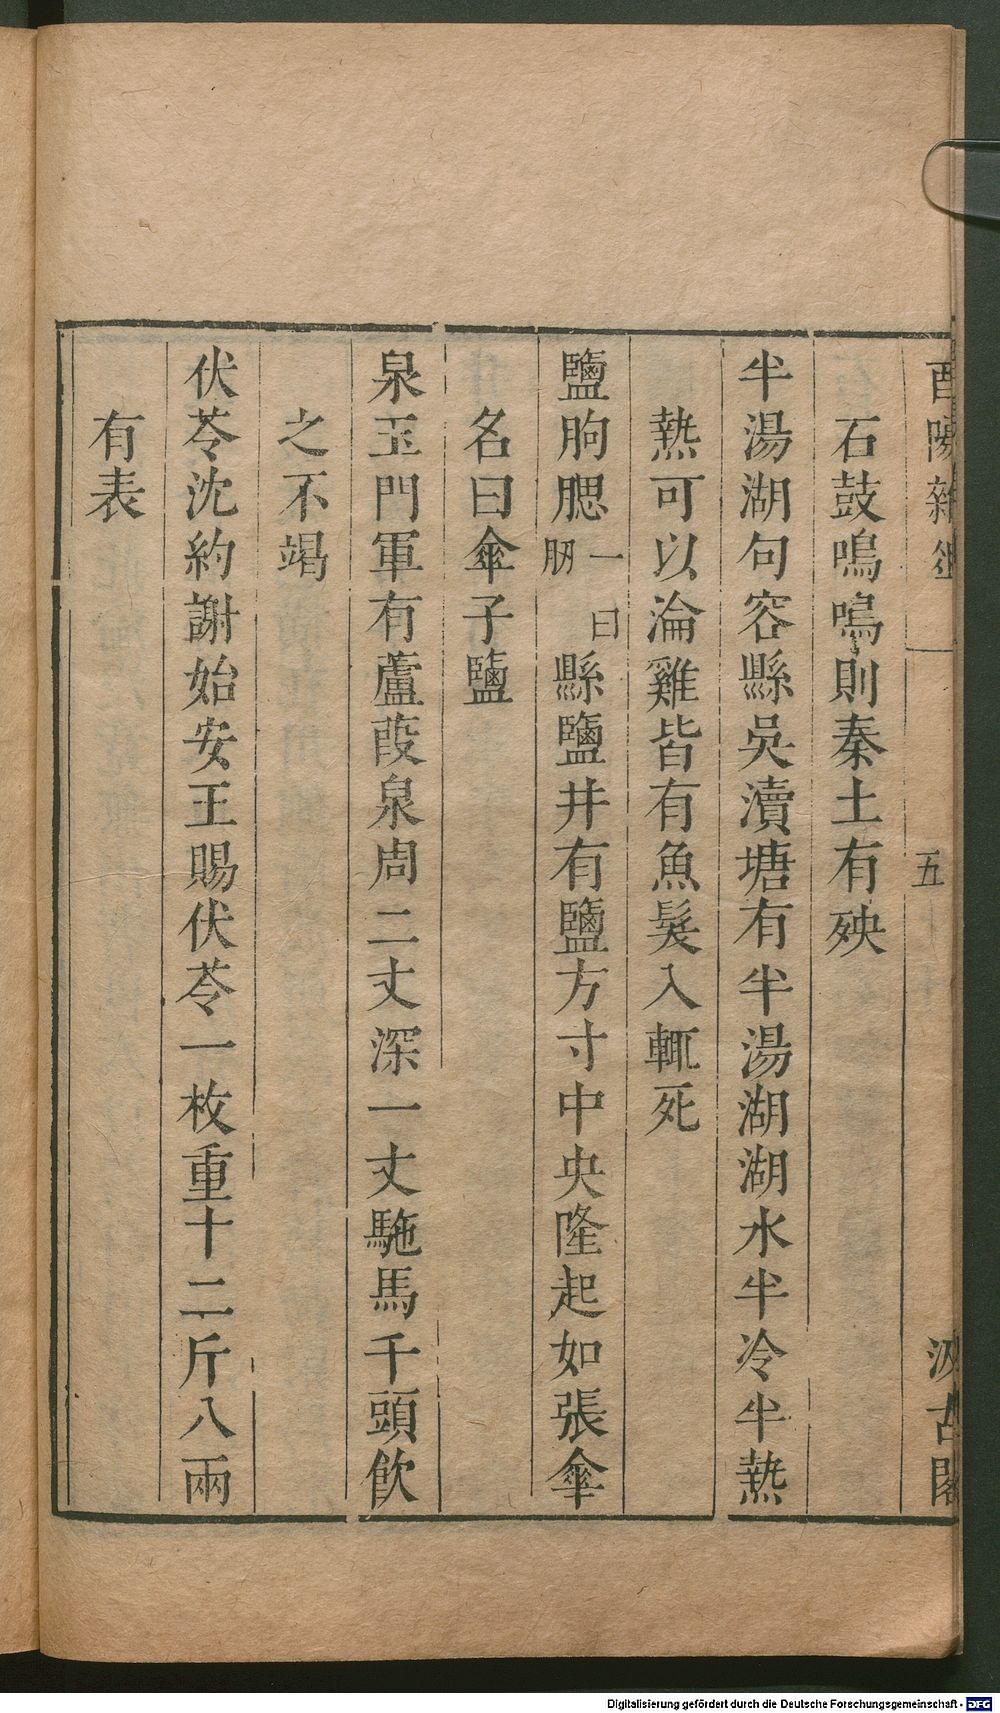 酉陽雜俎 五 汲古閣
石鼓鳴鳴則秦土有殃
半湯湖句容縣吳瀆塘有半湯湖湖水半冷半熱
熱可以淪雞皆有魚髮入輒死
鹽朐䏰一曰朋縣鹽井有鹽方寸中央隆起如張傘
名曰傘子鹽
泉玉門軍有蘆葭泉周二丈深一丈駞馬千頭飲
之不竭
伏苓沈約謝始安王賜伏苓一枚重十二斤八兩
有表
Digitalisierung gefördert durch die Deutsche Forschungsgemeinschaft - DFG